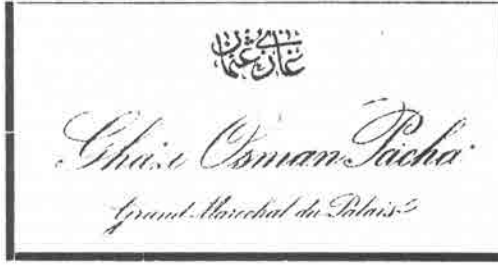 غازى عثمان
Ghazi Osman Pacha
Grand Maréchal du Palais